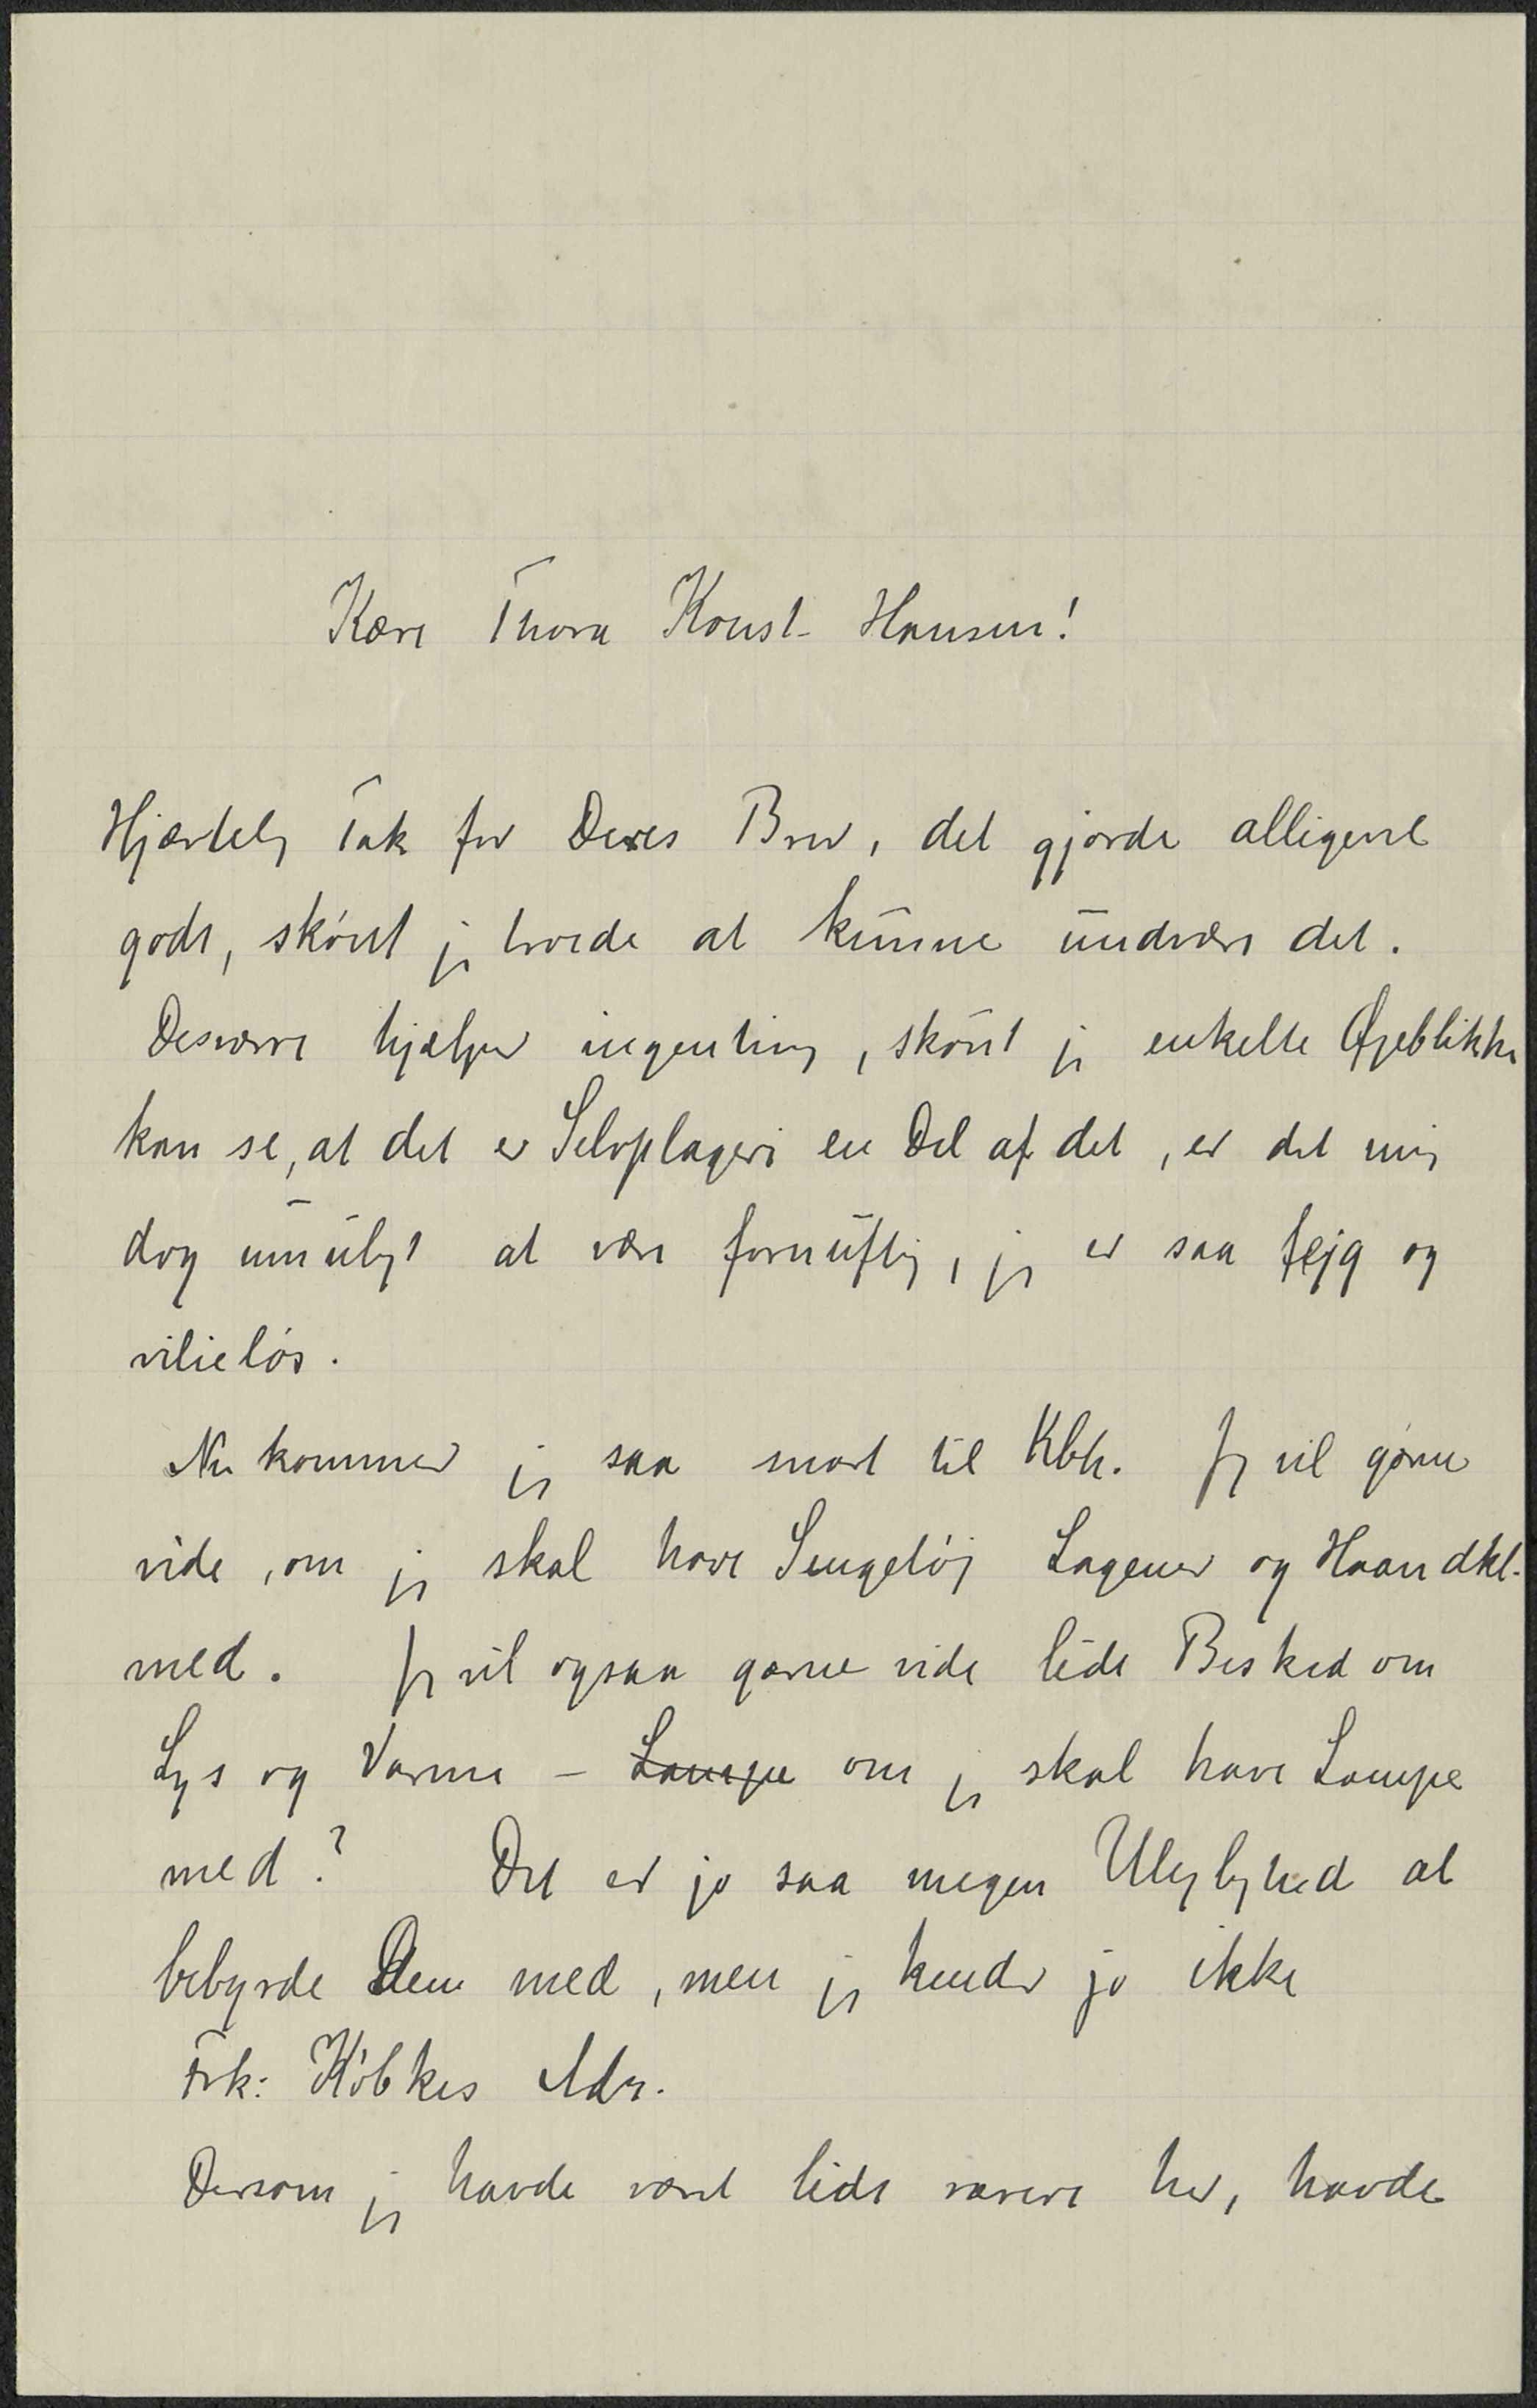 Kære Thora Konst. Hansen!
Hjærtelig Tak for Deres Brev, det gjorde alligevel
godt, skønt jeg troede at kunne undvære det.
Desværre hjælper ingenting, skønt jeg enkelte Øjeblikke
kan se, at det er Selvplageri en Del af det, er det mig
dog umuligt at være fornuftig, jeg er saa fejg og
vilieløs.
Nu kommer jeg saa snart til Kbh. Jeg vil gærne
vide, om jeg skal have Sengetøj Lagener og Haandkl.
med. Jeg vil ogsaa gærne vide lidt Besked om
Lys og Varme – Lampe om jeg skal have Lampe
med? Det er jo saa megen Ulejlighed at
bebyrde Dem med, men jeg kender jo ikke
Frk: Købkes Adr.
Dersom jeg havde været lidt raskere her, havde